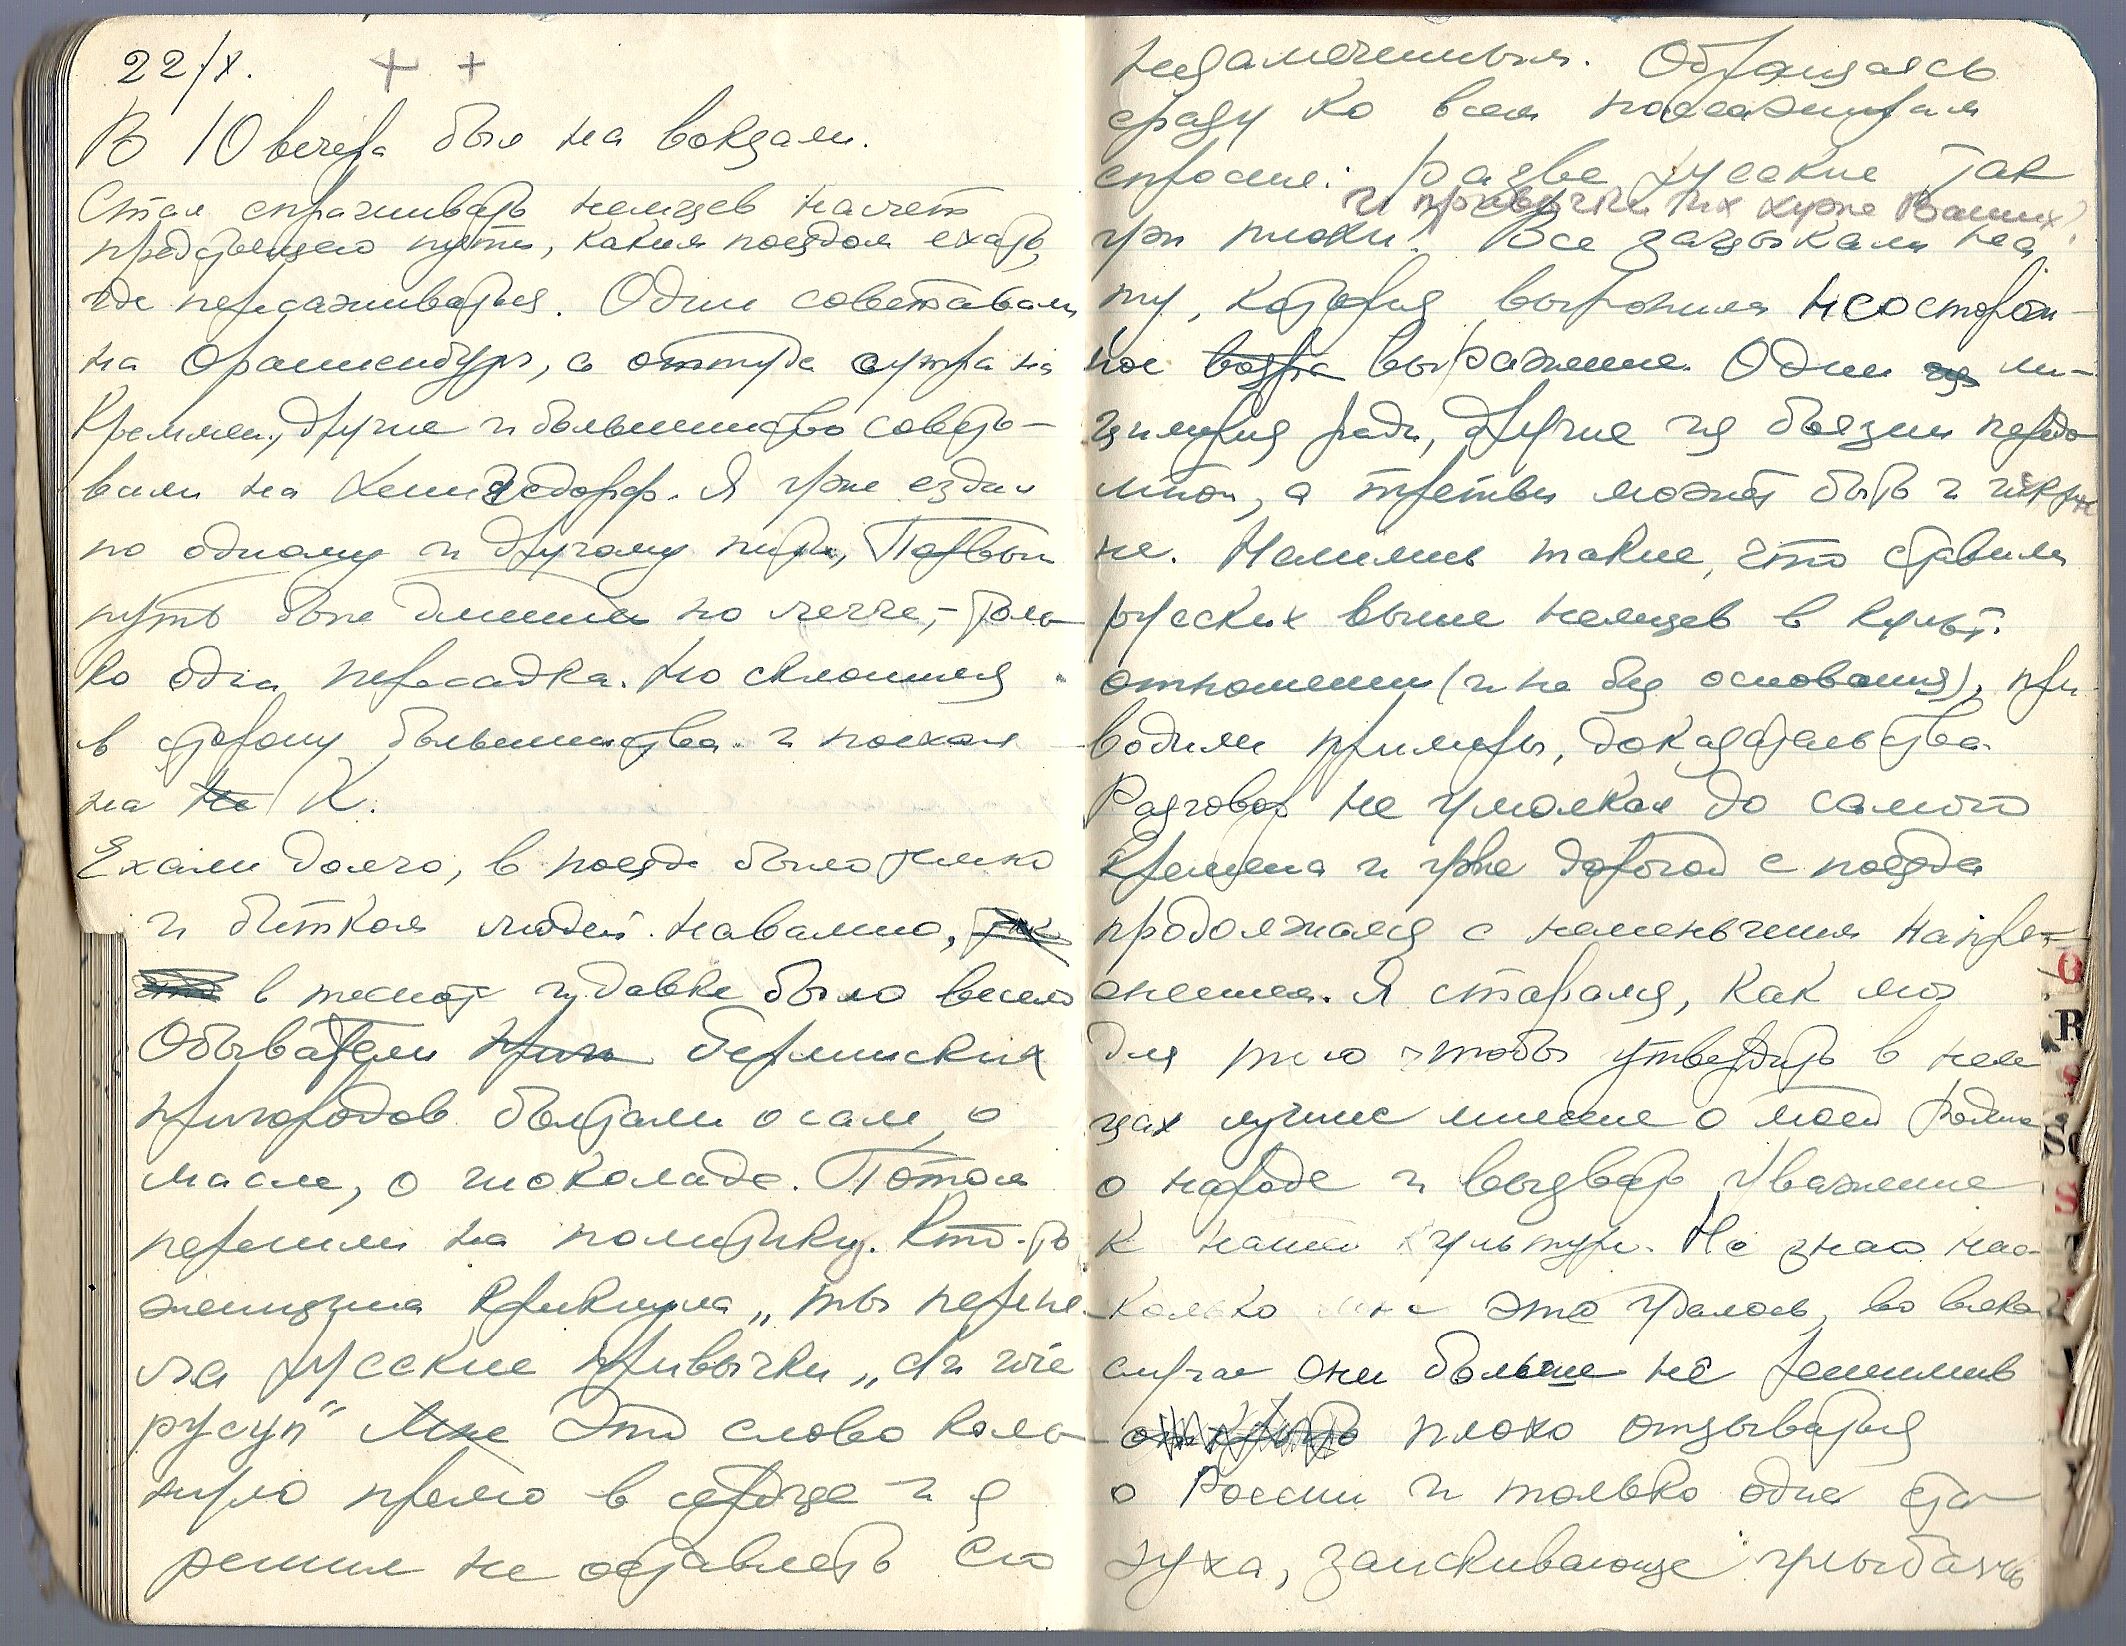 22/X.
В 10 вечера был на вокзале.
Стал спрашивать немцев насчет
предстоящего пути, каким поездом ехать,
где пересаживаться. Одни советовали
на Ораниенбург, а оттуда с утра на
Креммен, другие и большинство совето-
вали на Хеннигсдорф. Я уже ездил
по одному и другому пути, Первый
путь был длиннее но легче, - толь-
ко одна пересадка. Но склонился
в сторону большинства и поехал
на Не К.
Ехали долго, в поезде было темно
и битком людей навалено,
в тесноте и давке было весело
Обыватели берлинских
пригородов болтали о сале, о
масле, о шоколаде. Потом
перешли на политику. Кто-то
женщина крикнула „ты переня-
ла русские привычки „ду ви
русуп" Мне Это слово коль-
нуло прямо в сердце и я
решил не оставлять его
незамеченным. Обращаясь
сразу ко всем пассажирам
спросил: разве русские так
и привычки их хуже Ваших?
уж плохи? Все зацыкали на
ту, которая выронила неосторож-
ное возра выражение. Одни из ли-
цемерия ради, другие из боязни передо
мной, а третьи может быть и искрен
не. Нашлись такие, что ставили
русских выше немцев в культ.
отношении (и не без основания), при-
водили примеры, доказательства.
Разговор не умолкал до самого
Кремена и уже дорогой с поезда
продолжался с неменьшим напря-
жением. Я старался, как мог
для того чтобы утвердить в нем
цах лучшее мнение о моей Родине
о народе и вызвать уважение
к нашей культуре. Не знаю нас-
колько мне это удалось, во всяком
случае они больше не решились
плохо отзываться
о России и только одна ста-
руха, заискивающе улыбаясь